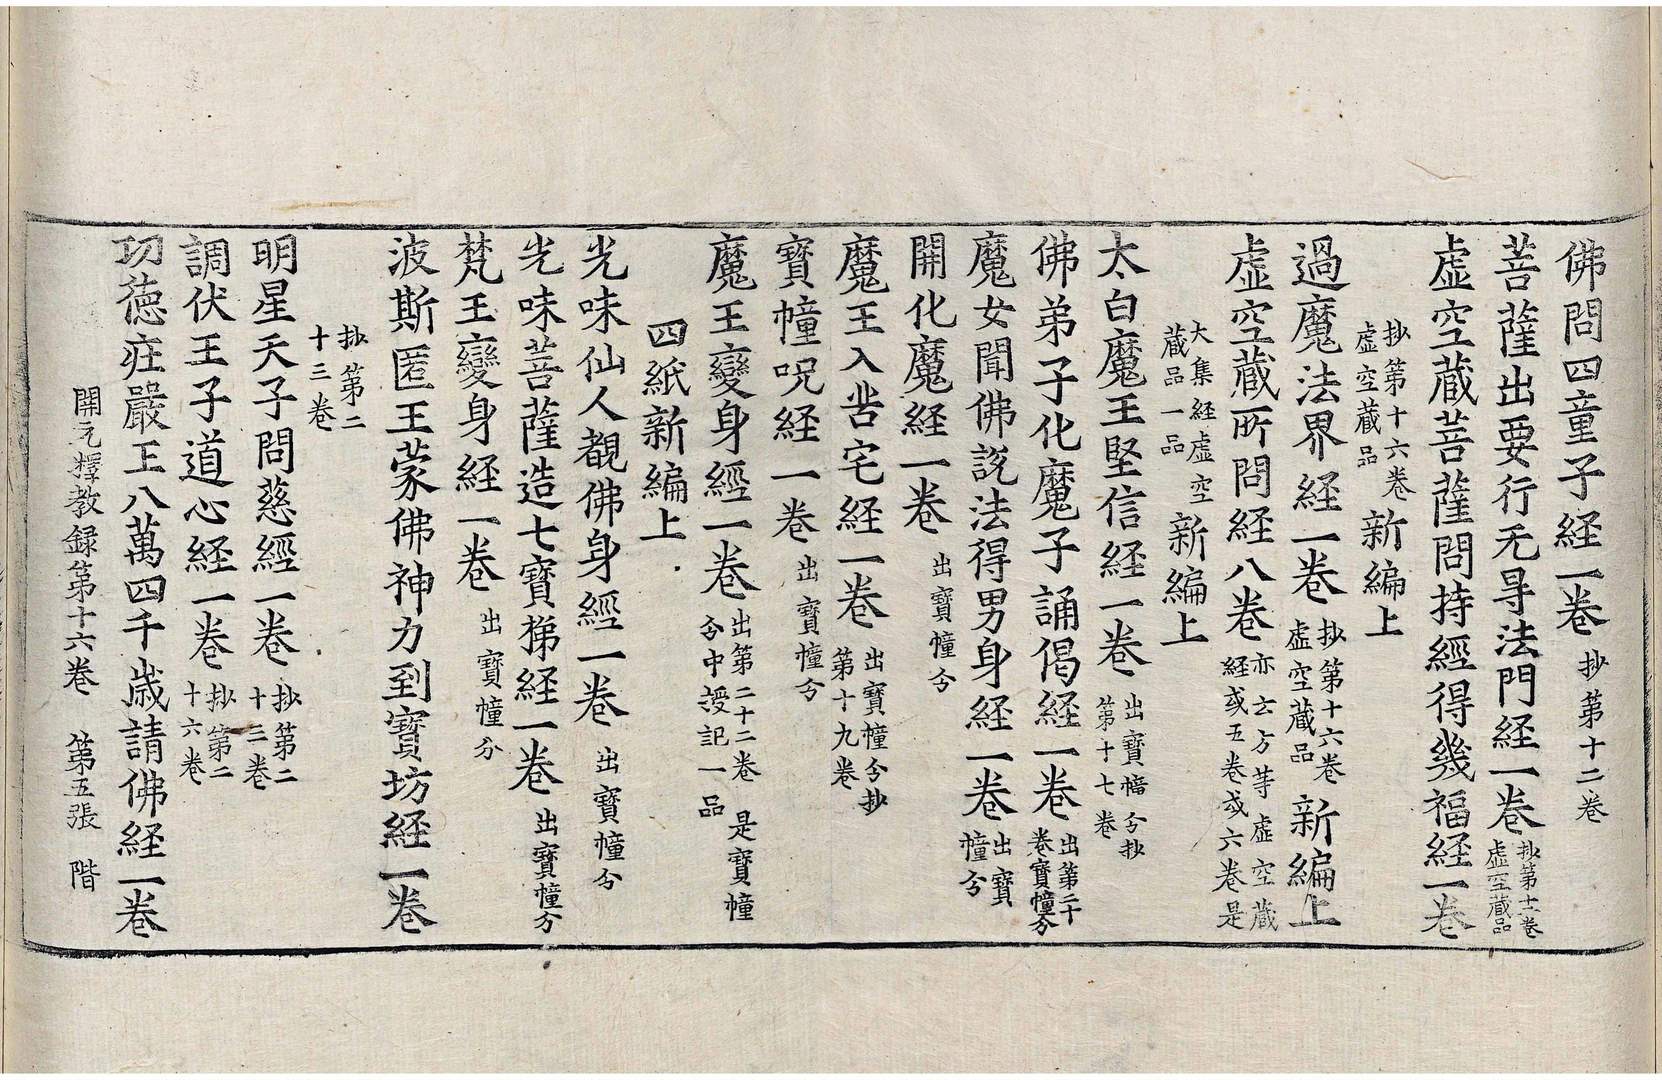 佛問四童子経一卷 抄第十二卷
菩薩出要行无㝵法門経一卷 抄第十一卷虚空蔵品
虚空蔵菩薩問持經得幾福経一卷
抄第十六卷虚空蔵品 新編上
過魔法界経一卷 抄第十六卷虚空蔵品 新編上
虚空蔵所問経八卷 亦云方等虚空蔵経或五卷或六卷是
大集経虚空蔵品一品 新編上
太白魔王堅信経一卷 出寶幢分抄第十七卷
佛弟子化魔子誦偈経一卷 出第二十卷寶幢分
魔女聞佛說法得男身経一卷 出寶幢分
開化魔経一卷 出寶幢分
魔王入㘴宅経一卷 出寶幢分抄第十九卷
寶幢呪経一卷 出寶幢分
魔王變身經一卷 出第二十二卷是寶幢分中授記一品
四紙新編上
光味仙人覩佛身經一卷 出寶幢分
光味菩薩造七寶梯経一卷 出寶幢分
梵王變身経一卷 出寶幢分
波斯匿王蒙佛神力到寶坊経一卷
抄第二十三卷
明星天子問慈經一卷 抄第二十三卷
調伏王子道心経一卷 抄第二十六卷
功德莊嚴王八萬四千歲請佛経一卷
開元釋教録第十六卷 第五張 階